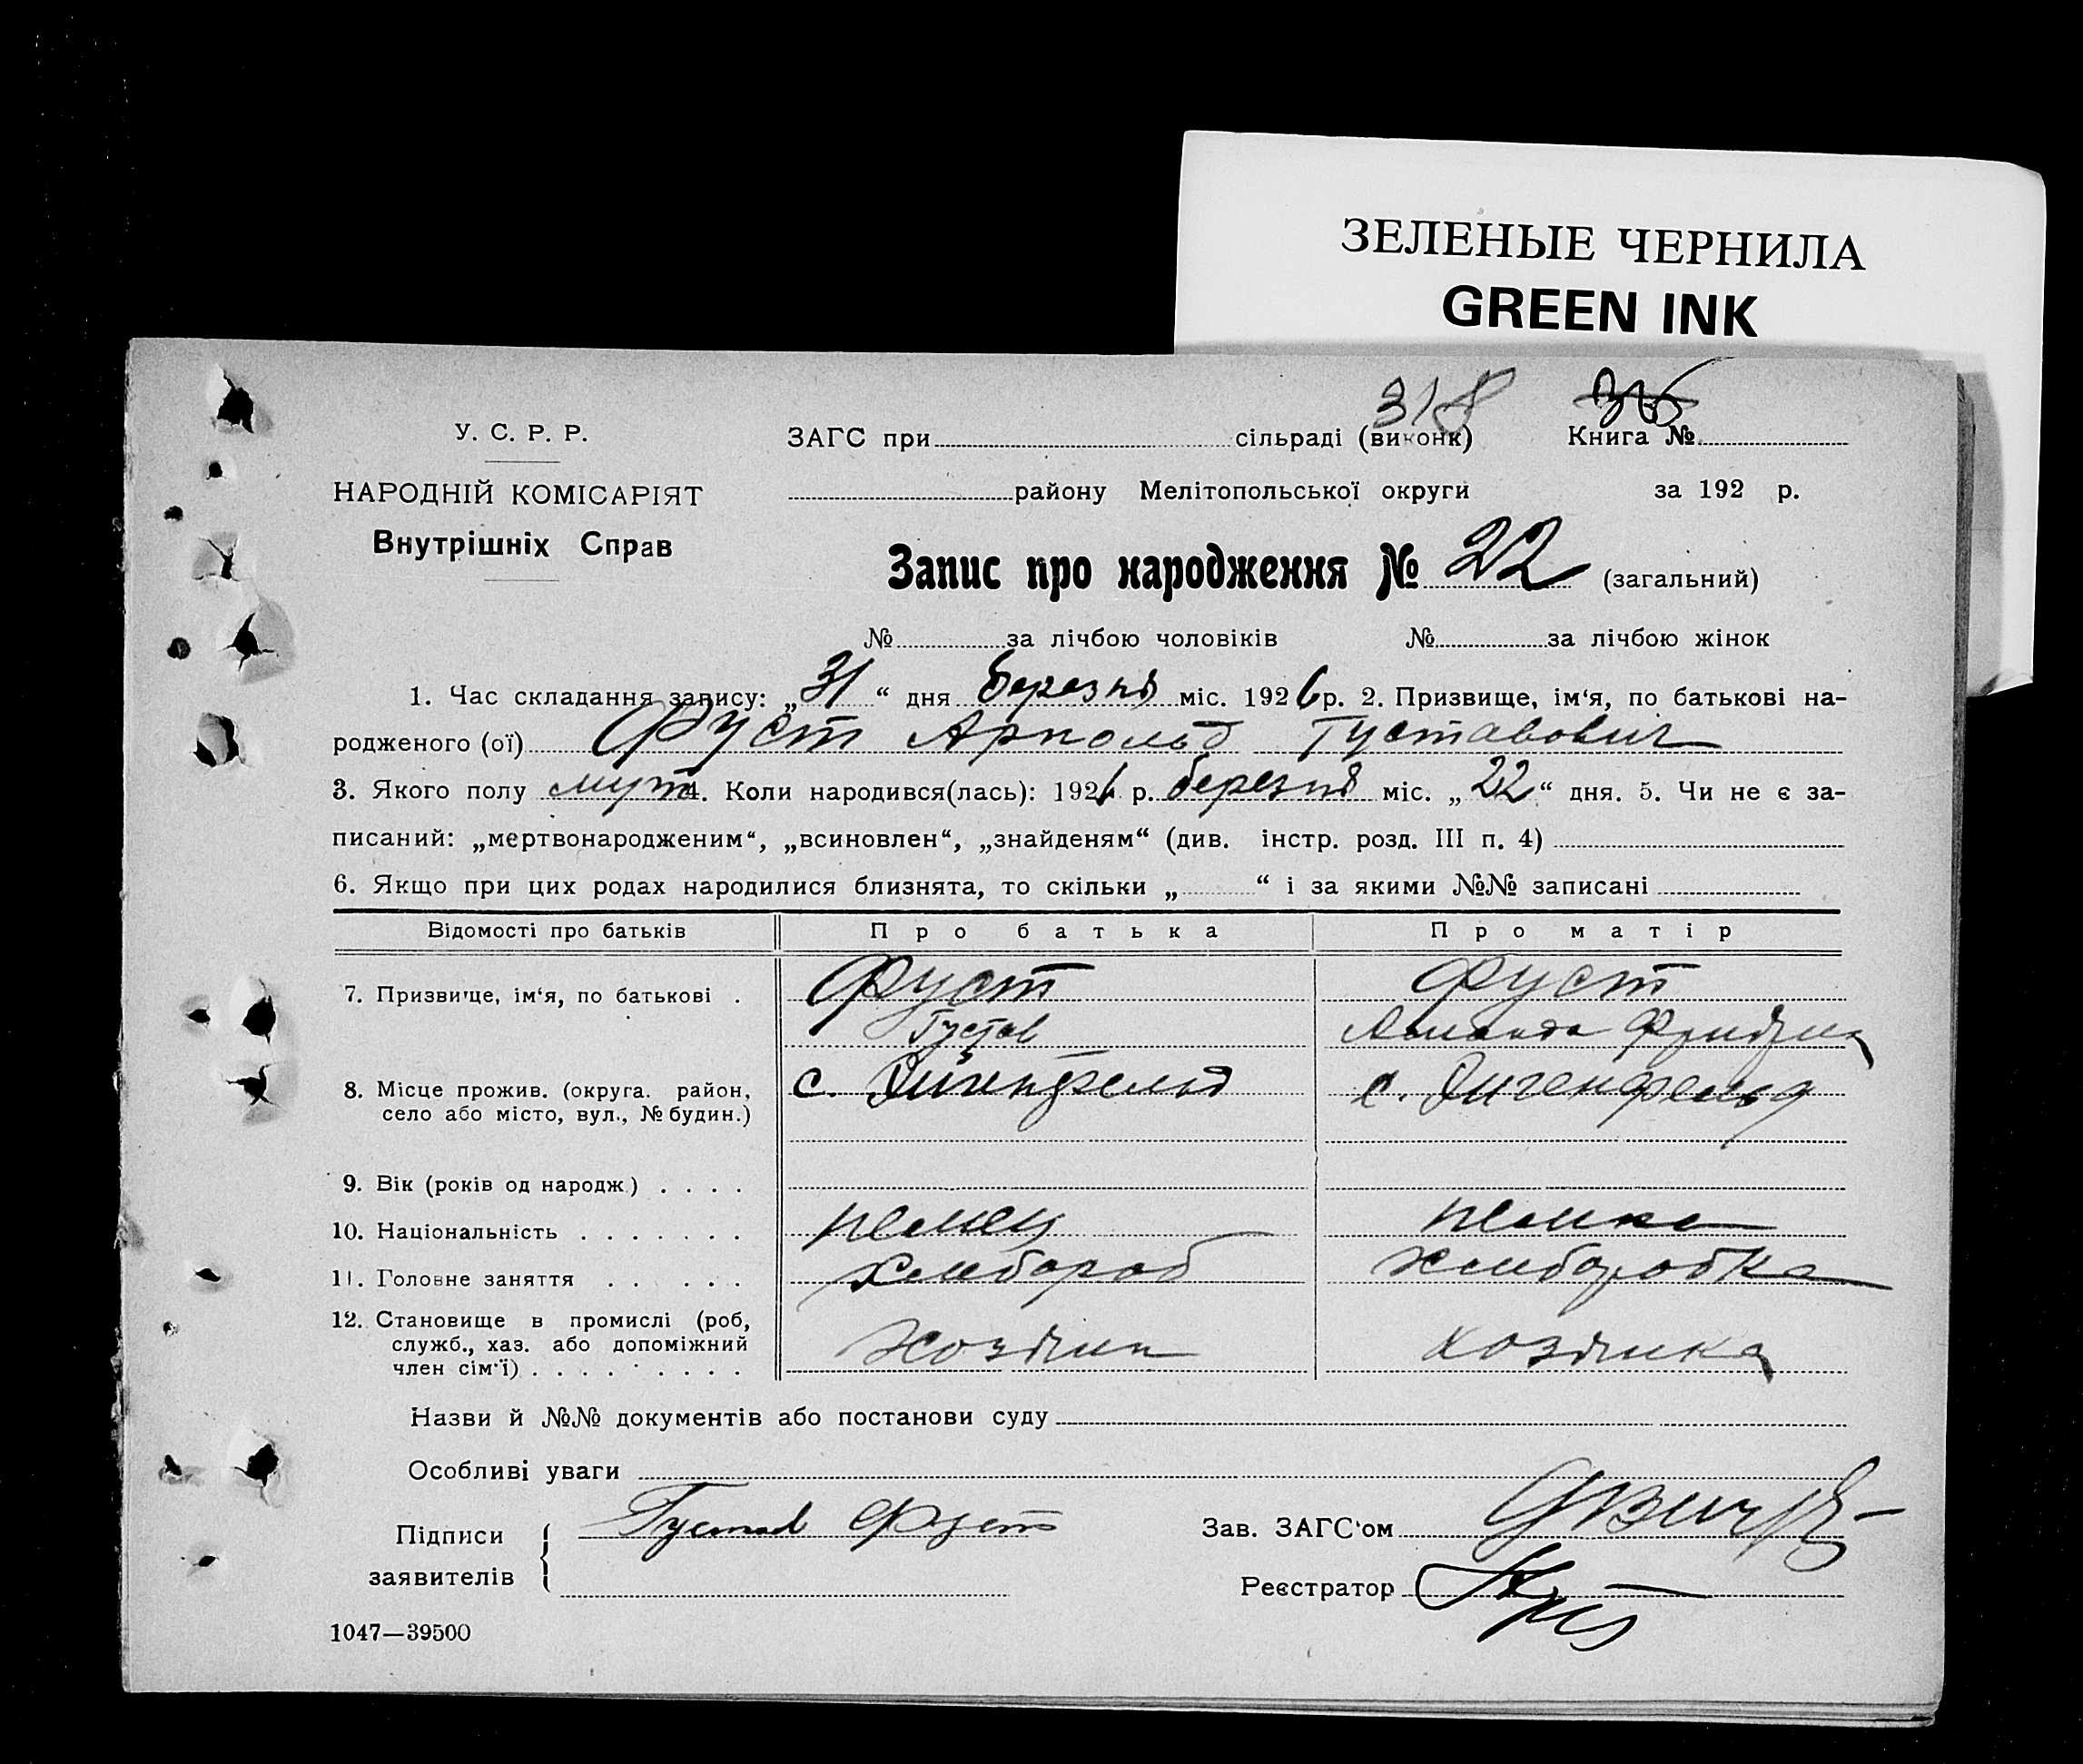 ЗЕЛЕНЫЕ ЧЕРНИЛА
GREEN INK
318 36
У. С. Р. Р.
ЗАГС при сільраді (виконк) Книга №
НАРОДНІЙ КОМІСАРІЯТ
району Мелітопольської округи за 192 р.
Внутрішніх Справ
Запис про народження № 22 (загальний)
№ за лічбою чоловіків № за лічбою жінок
1. Час складання запису: „31“ дня березня міс. 1926 р. 2. Призвище, ім‘я, по батькові на-
родженого (ої) Фуст Арнольд Густавович
3. Якого полу муж 4. Коли народився(лась): 1926 р. березня міс. „22“ дня. 5. Чи не є за-
писаний: „мертвонародженим“, „всиновлен“, „знайденям“ (див. інстр. розд. III п. 4)
6. Якщо при цих родах народилися близнята, то скільки „ “ і за якими №№ записані
Відомості про батьків Про батька Про матір
7. Призвище, ім‘я, по батькові . Фуст Фуст
Густав
8. Місце прожив. (округа. район, с. Эйгенфельд с. Эйгенфельд
село або місто, вул., № будин.)
9. Вік (років од народж.) . . . .
10. Національність . . . . . . . немец немка
11. Головне заняття . . . . . . хлибороб хлиборобка
12. Становище в промислі (роб,
служб., хаз. або допоміжний хозяин хозяика
член сім‘ї) . . . . . . . . .
Назви й №№ документів або постанови суду
Особливі уваги
Підписи Густав Фуст Зав. ЗАГС‘ом
заявителів Реєстратор
1047—39500